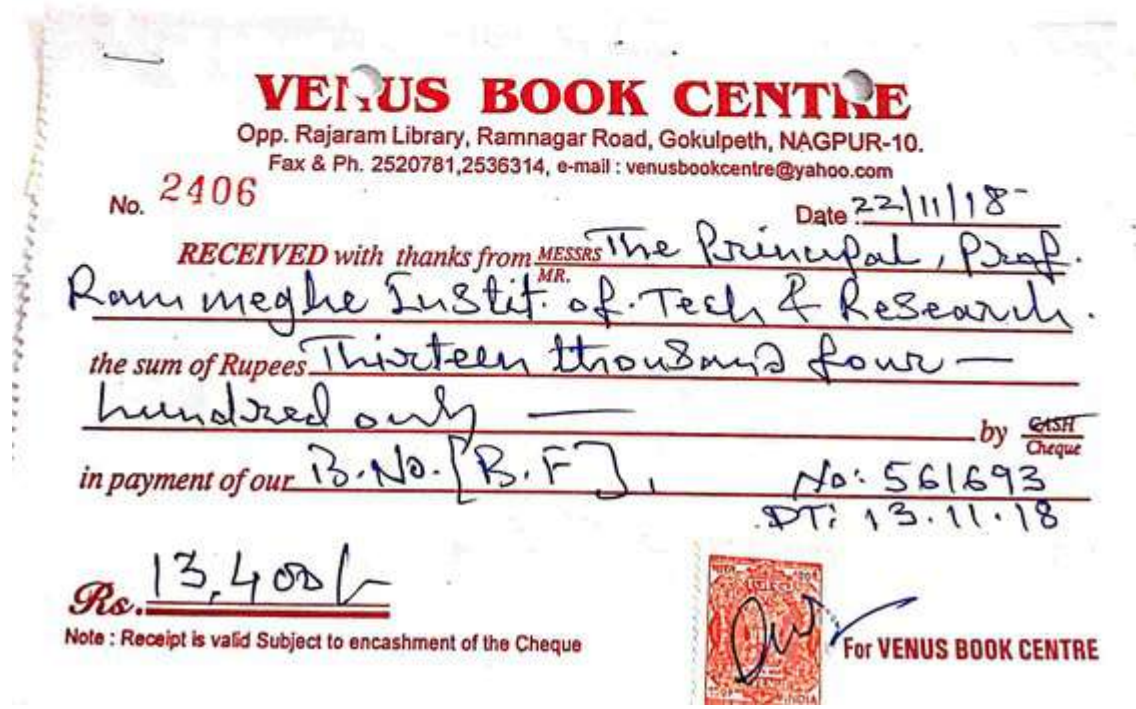 VENUS BOOK CENTRE
Opp. Rajaram Library, Ramnagar Road, Gokulpeth, NAGPUR-10.
Fax & Ph. 2520781,2536314, e-mail : venusbookcentre@yahoo.com
No. 2406
Date 22/11/18
RECEIVED with thanks from MESSRS MR. The Principal, Prof.
Ram meghe Instit. of. Tech & Research.
the sum of Rupees Thirteen thousand four —
hundred only — by CASH Cheque
in payment of our B.No. [B.F], No: 561693
DT: 13.11.18
Rs. 13,400/-
Note : Receipt is valid Subject to encashment of the Cheque
For VENUS BOOK CENTRE
INDIA